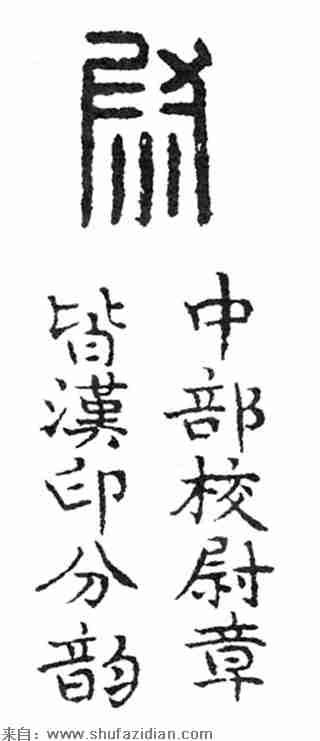 尉
中部校尉章
皆漢印分韵
来自：www.shufazidian.com